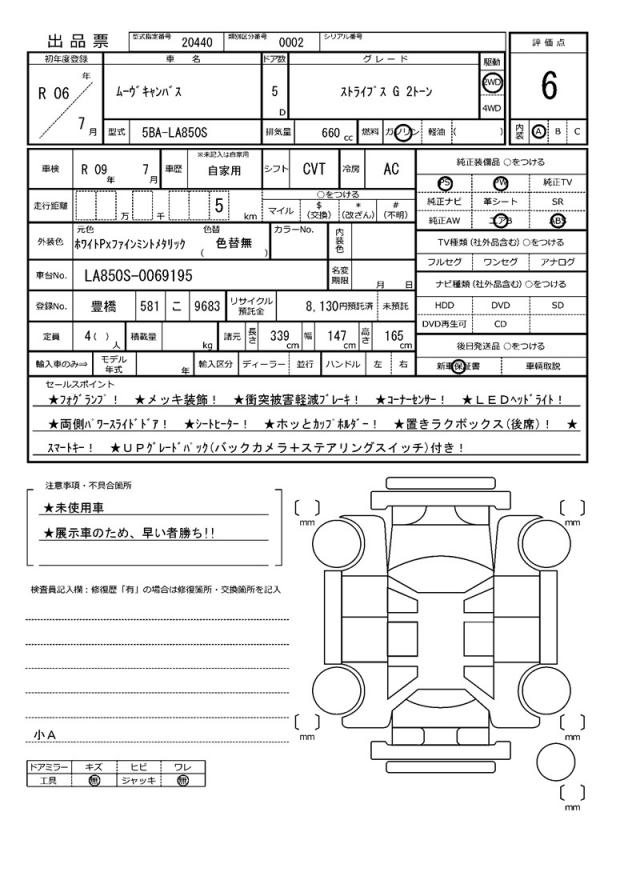 出品票 型式指定番号 20440 類別区分番号 0002 シリアル番号
評価点
6
内装 A B C
初年度登録 車名 ドア数 グレード 駆動
R 06 年 7 月 ﾑｰｳﾞｷｬﾝﾊﾞｽ 5 D ｽﾄﾗｲﾌﾟｽ G 2ﾄｰﾝ 2WD
4WD
型式 5BA-LA850S 排気量 660 cc 燃料 ガソリン 軽油 ( )
車検 R 09 年 7 月 車歴 ※未記入は自家用 自家用 シフト CVT 冷房 AC
走行距離 万 千 5 km ○をつける
マイル $(交換) *(改ざん) #(不明)
外装色 元色 ﾎﾜｲﾄPxﾌｧｲﾝﾐﾝﾄﾒﾀﾘｯｸ 色替 ( 色替無 ) カラーNo. 内装色
車台No. LA850S-0069195 名変期限 月 日
登録No. 豊橋 581 こ 9683 リサイクル預託金 8,130円預託済 未預託
定員 4 ( ) 人 積載量 kg 諸元 長さ 339 cm 幅 147 cm 高さ 165 cm
輸入車のみ⇒ モデル年式 年 輸入区分 ディーラー 並行 ハンドル 左 右
純正装備品 ○をつける
PS PW 純正TV
純正ナビ 革シート SR
純正AW エアB ABS
TV種類 (社外品含む) ○をつける
フルセグ ワンセグ アナログ
ナビ種類 (社外品含む) ○をつける
HDD DVD SD
DVD再生可 CD
後日発送品 ○をつける
新車保証書 車輌取説
セールスポイント
★ﾌｫｸﾞﾗﾝﾌﾟ！ ★メッキ装飾！ ★衝突被害軽減ﾌﾞﾚｰｷ！ ★ｺｰﾅｰｾﾝｻｰ！ ★ＬＥＤﾍｯﾄﾞﾗｲﾄ！
★両側ﾊﾟﾜｰｽﾗｲﾄﾞﾄﾞｱ！ ★ｼｰﾄﾋｰﾀｰ！ ★ホッとｶｯﾌﾟﾎﾙﾀﾞｰ！ ★置きラクボックス(後席)！ ★
ｽﾏｰﾄｷｰ！ ★ＵＰｸﾞﾚｰﾄﾞﾊﾟｯｸ(バックカメラ＋ステアリングスイッチ)付き！
注意事項・不具合箇所
★未使用車
★展示車のため、早い者勝ち!!
検査員記入欄：修復歴「有」の場合は修復箇所・交換箇所を記入
小Ａ
ドアミラー キズ ヒビ ワレ
工具 無 ジャッキ 無
[ ] mm
[ ] mm
[ ] mm
[ ] mm
[ ] mm